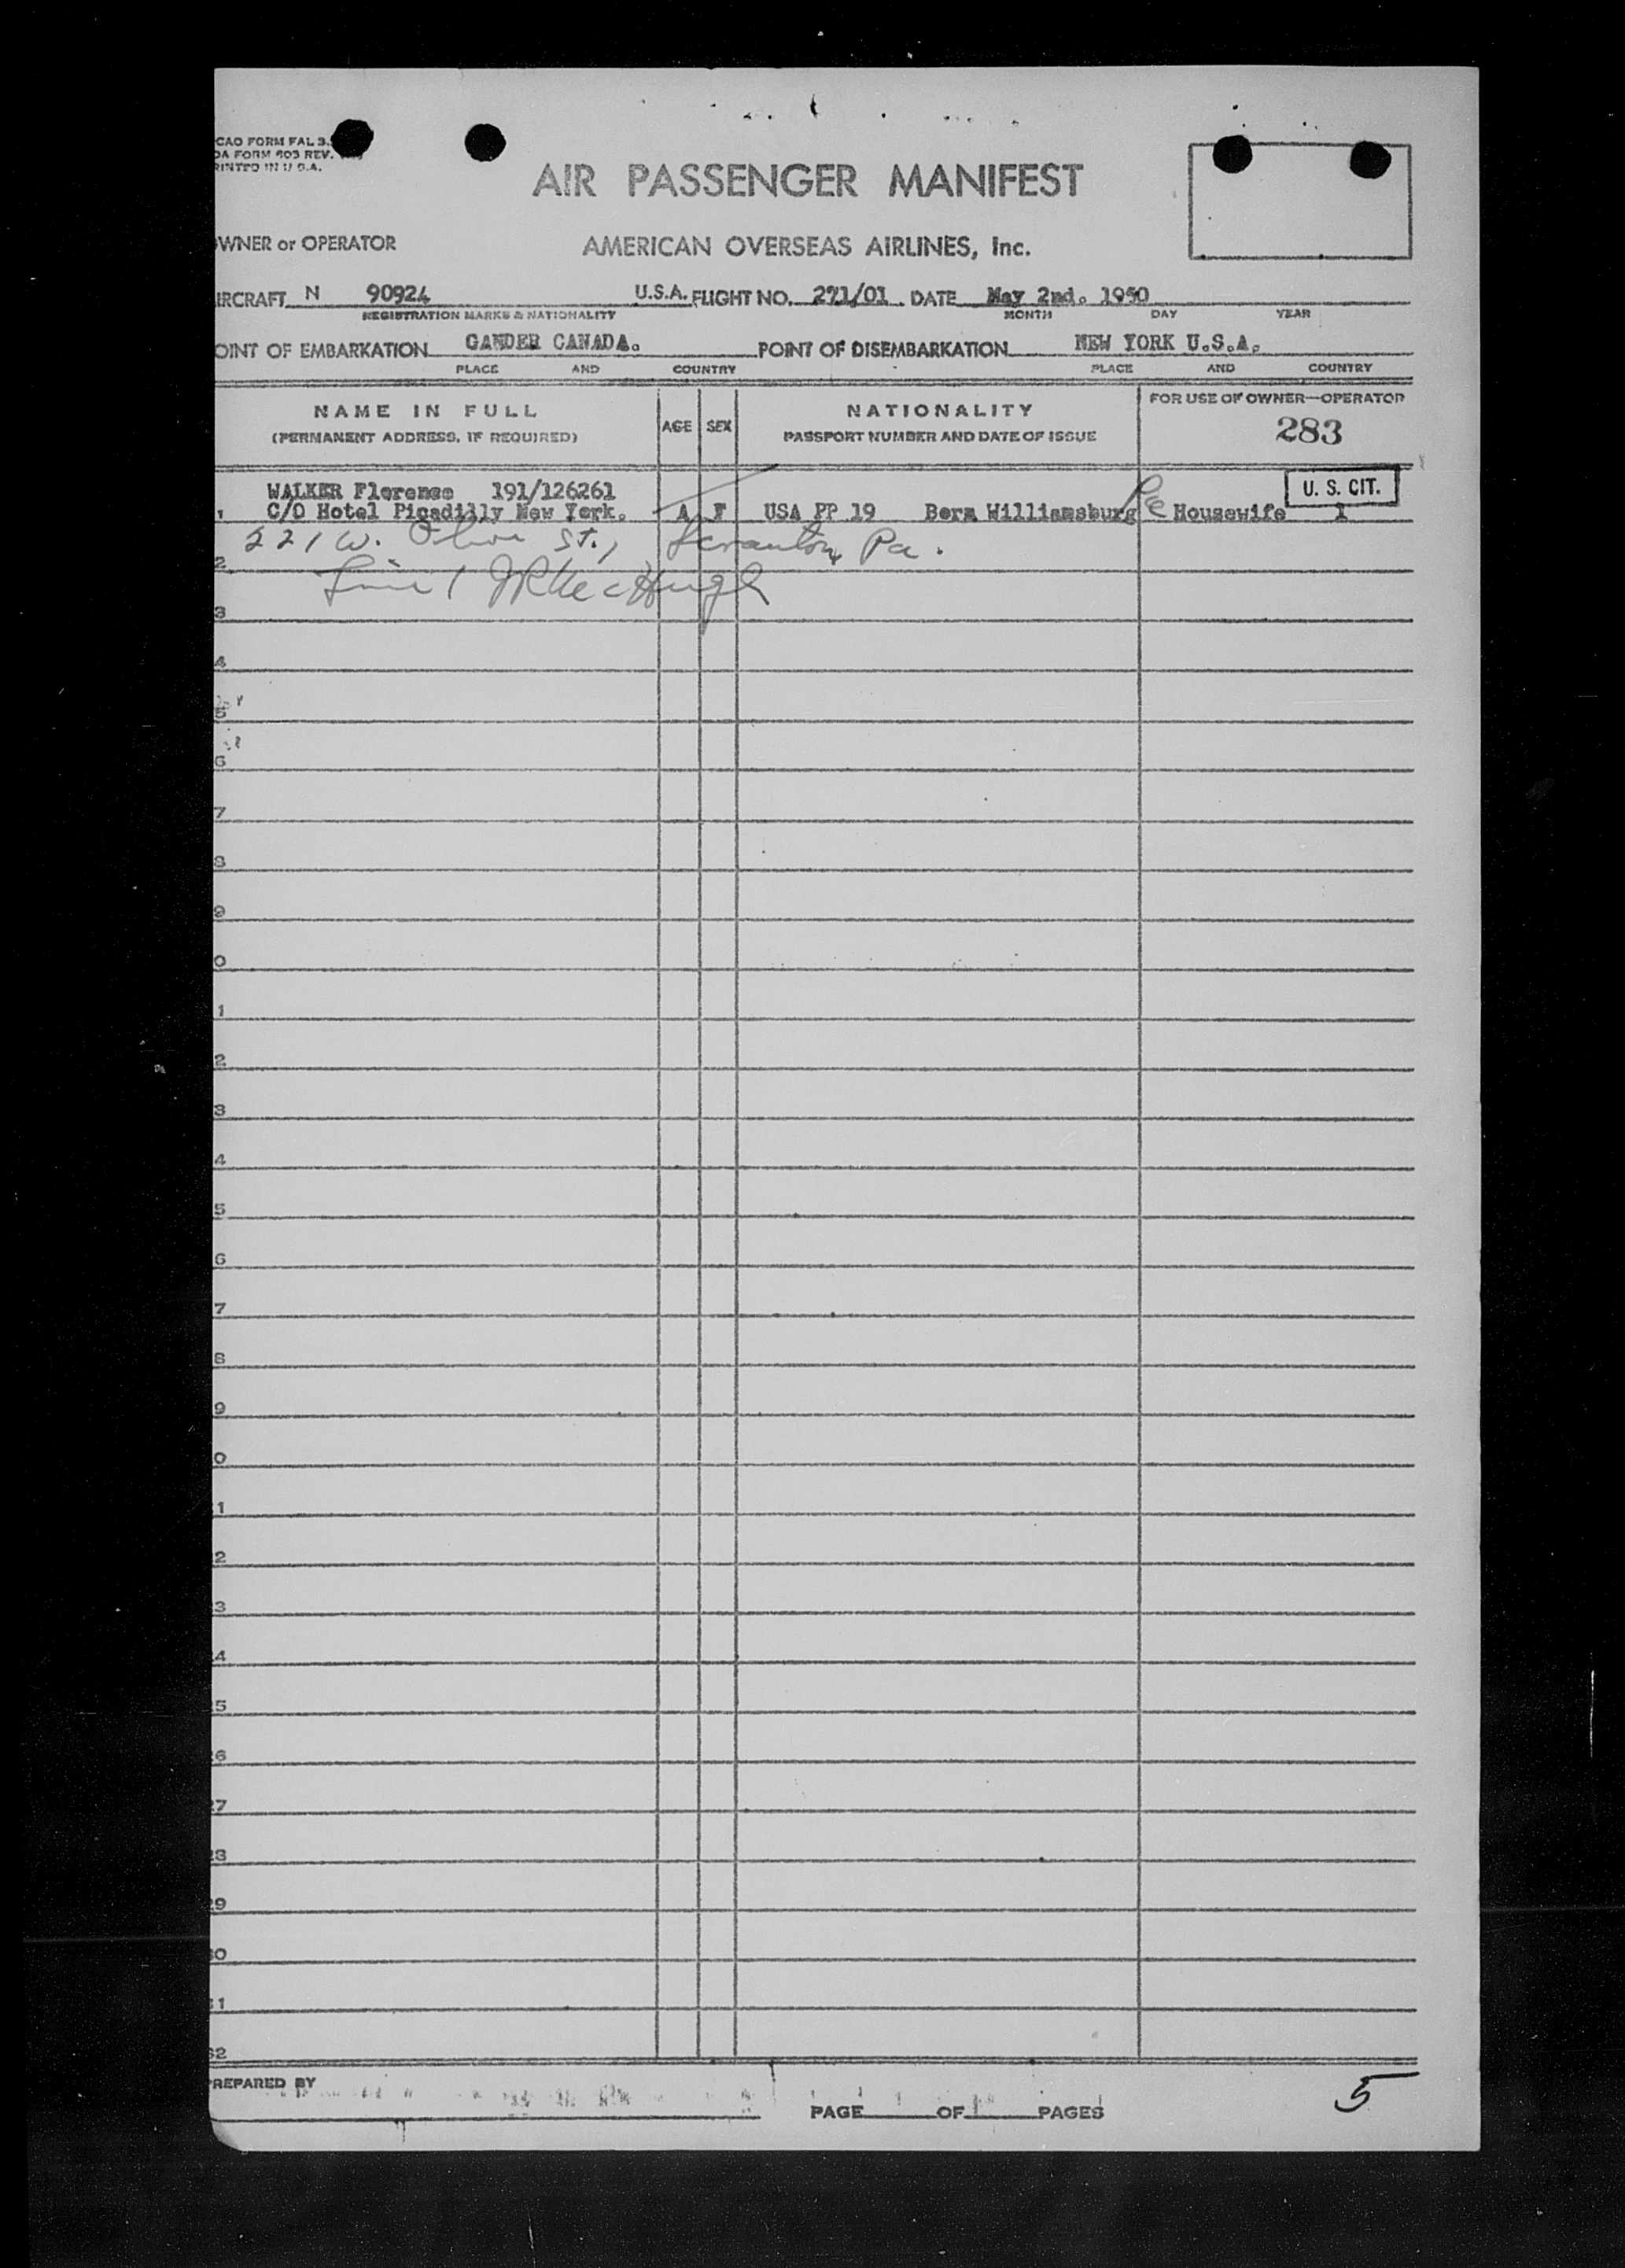 CAO FORM FAL 3.
DA FORM 603 REV.
RINTED IN U S.A.
AIR PASSENGER MANIFEST
OWNER or OPERATOR AMERICAN OVERSEAS AIRLINES, Inc.
IRCRAFT N 90924 U.S.A. FLIGHT NO. 271/01 DATE May 2nd. 1950
REGISTRATION MARKS & NATIONALITY MONTH DAY YEAR
OINT OF EMBARKATION GANDER CANADA. POINT OF DISEMBARKATION NEW YORK U.S.A.
PLACE AND COUNTRY PLACE AND COUNTRY
NAME IN FULL AGE SEX NATIONALITY FOR USE OF OWNER—OPERATOR
(PERMANENT ADDRESS, IF REQUIRED) PASSPORT NUMBER AND DATE OF ISSUE 283
WALKER Florence 191/126261 U. S. CIT.
1 C/O Hotel Picadilly New York. A F USA PP 19 Born Williamsburg Pa Housewife 1
221 W. Olive St., Scranton, Pa.
2
Line 1
3
4
5
6
7
8
9
0
1
2
3
4
5
6
7
8
9
0
1
2
3
4
5
6
7
8
9
0
1
2
REPARED BY
PAGE OF PAGES 5